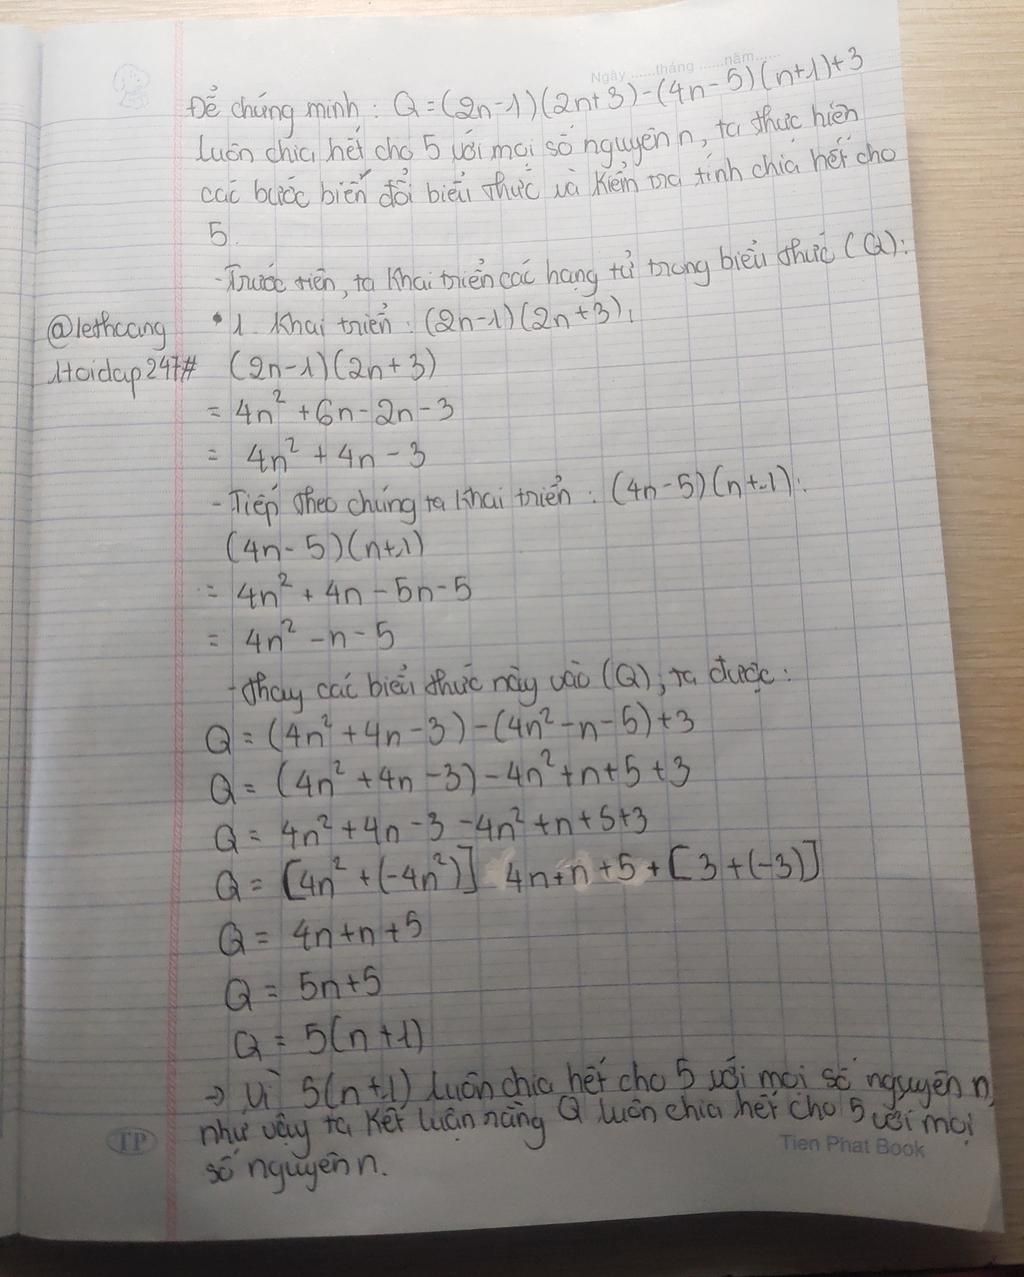 Ngày ......tháng ......năm......
Để chứng minh : Q = (2n-1)(2n+3)-(4n-5)(n+1)+3
luôn chia hết cho 5 với mọi số nguyên n, ta thực hiện
các bước biến đổi biểu thức và kiểm tra tính chia hết cho
5.
-Trước tiên, ta khai triển các hạng tử trong biểu thức (Q):
@lethccing
Hoidap247#
• 1. Khai triển : (2n-1)(2n+3):
(2n-1)(2n+3)
= 4n² +6n-2n-3
= 4n² + 4n - 3
- Tiếp theo chúng ta khai triển : (4n-5)(n+1):
(4n-5)(n+1)
= 4n² + 4n - 5n-5
= 4n² -n-5
-Thay các biểu thức này vào (Q), ta được :
Q = (4n²+4n-3)-(4n²-n-5)+3
Q = (4n²+4n-3)-4n²+n+5+3
Q = 4n²+4n-3-4n²+n+5+3
Q = [4n²+(-4n²)] 4n+n+5+[3+(-3)]
Q = 4n+n+5
Q = 5n+5
Q = 5(n+1)
→ Vì 5(n+1) luôn chia hết cho 5 với mọi số nguyên n,
như vậy ta kết luận rằng Q luôn chia hết cho 5 với mọi
số nguyên n.
TP
Tien Phat Book